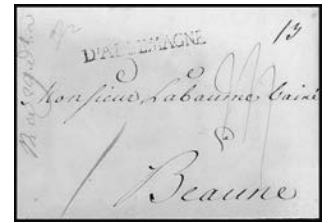 13
D'ALLEMAGNE
Monsieur Labaume L'ainé
Beaune